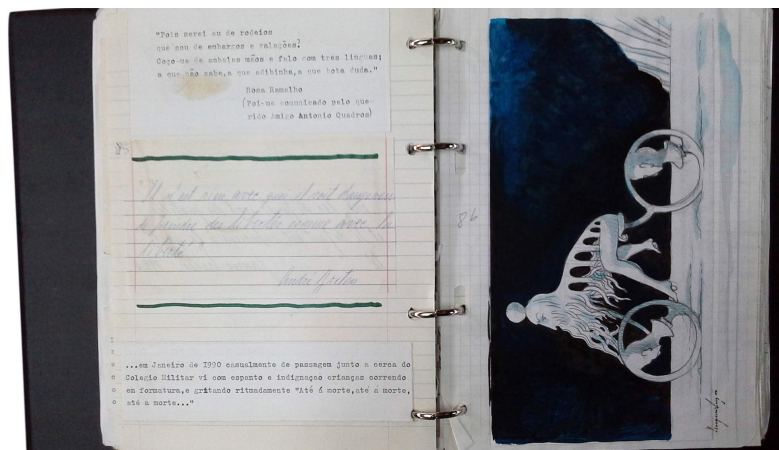 "Pois serei eu de rodeios
que sou de embargos e relações?
Coço-me de ambalas mãos e falo com tres linguas;
a que não sabe,a que adibinha,a que bota duda."
Rosa Ramalho
(Foi-me comunicado pelo que-
rido Amigo Antonio Quadros)
85
"Il n'est rien avec quoi il soit dangereux
de prendre des libertés comme avec la
liberté"
André Breton
...em Janeiro de I990 casualmente de passagem junto a cerca do
Colegio Militar vi com espanto e indignação crianças correndo
em formatura,e gritando ritmadamente "Até á morte,até a morte,
até a morte..."
86